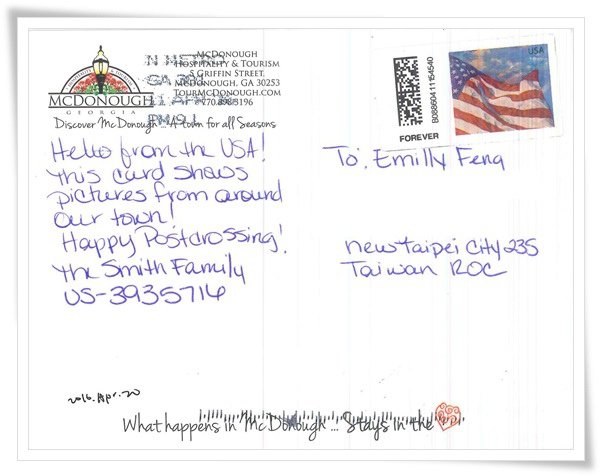 McDonough
Hospitality & Tourism
5 Griffin Street,
McDonough, GA 30253
TourMcDonough.com
MCDONOUGH
GEORGIA
Discover McDonough
A Town for all Seasons
USA
FOREVER
B088604 11164540
Hello from the USA!
This card shows
pictures from around
our town!
Happy Postcrossing!
The Smith Family
US-3935716
To: Emilly Feng
New Taipei City 235
Taiwan ROC
2016.Apr.20
What happens in McDonough... Stays in the